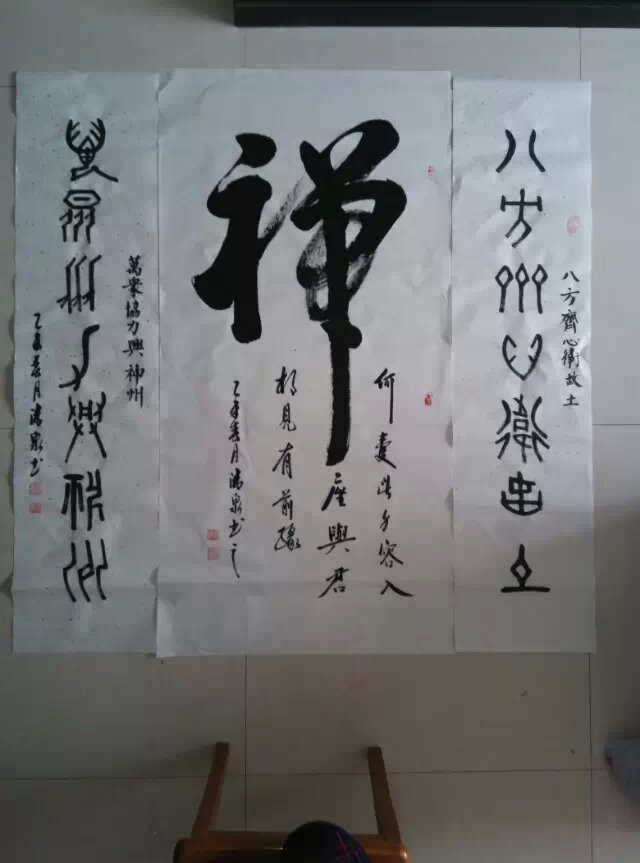 八方齊心衛故土
八方齊心衛故土
禪
何此容入
座與君
相見有前緣
乙未春月書之
萬眾協力興神州
萬眾協力興神州
乙未春月書